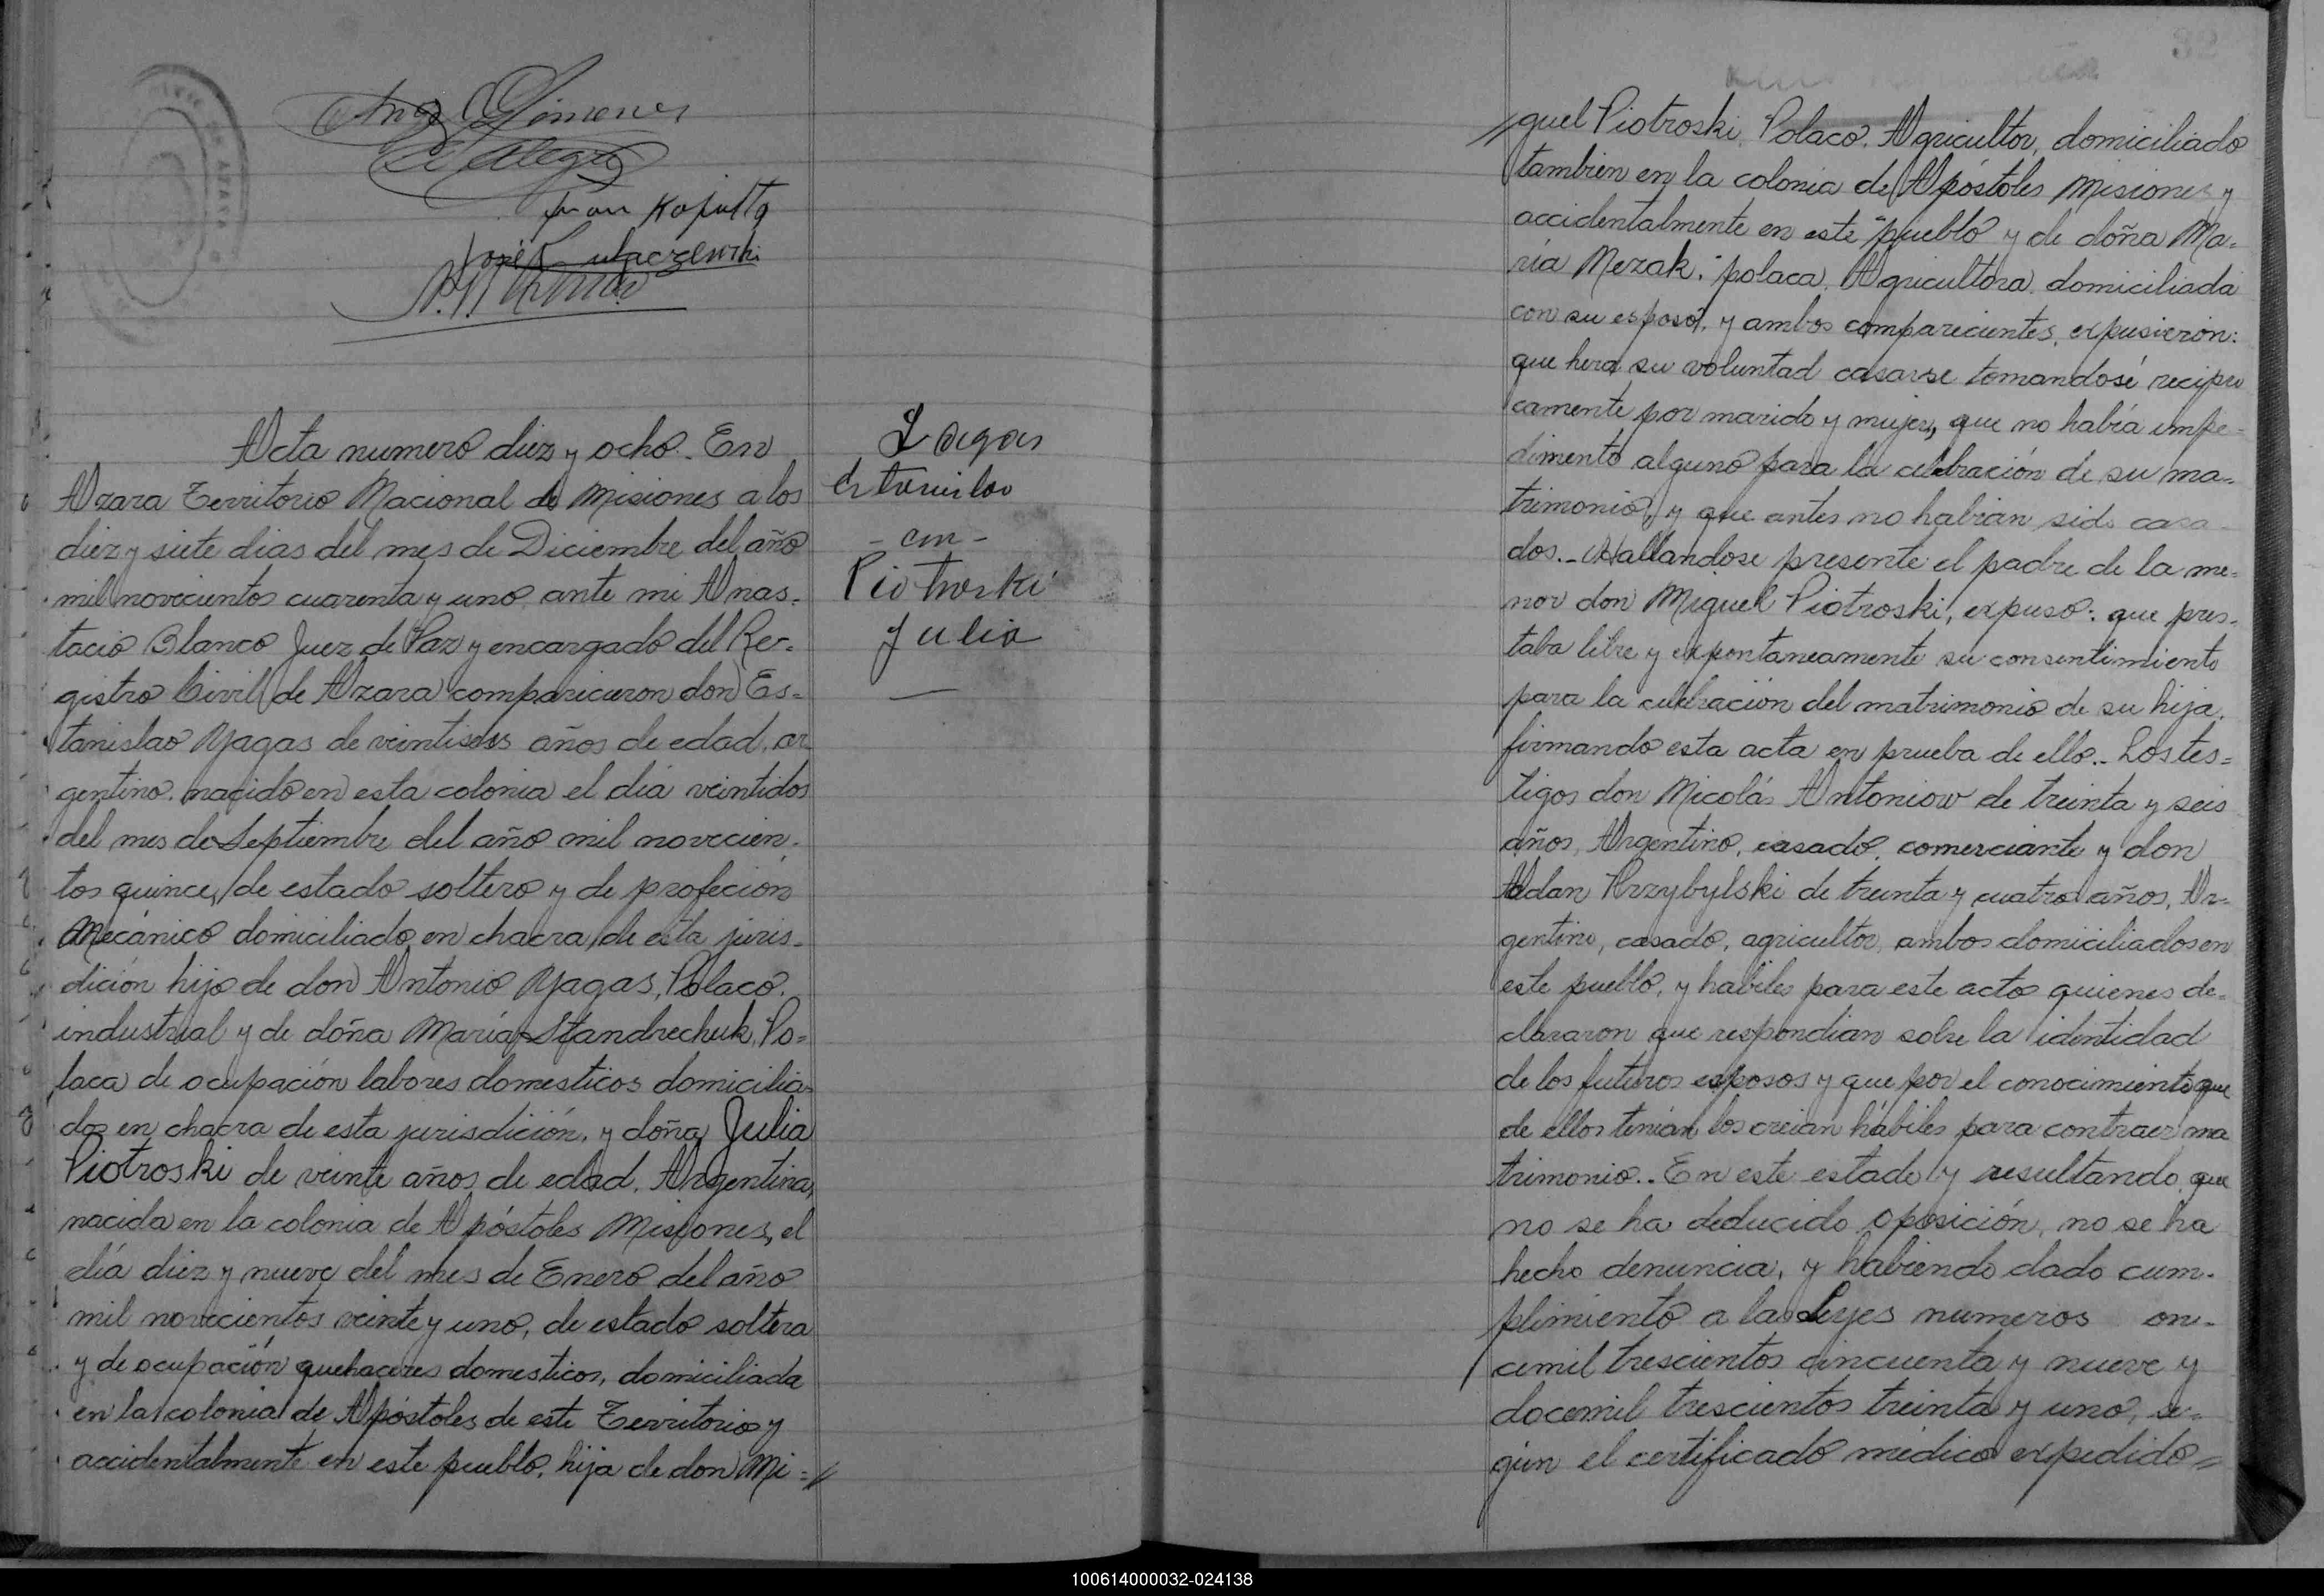 Juan Koputta
Acta numero diez y ocho.- En
Azara Territorio Nacional de Misiones a los
diez y siete dias del mes de Diciembre del año
mil novecientos cuarenta y uno, ante mi Anas-
tacio Blanco Juez de Paz y encargado del Re-
gistro Civil de Azara comparicieron don Es-
tanislao Yagas de veintiseis años de edad, ar
gentino, nacido en esta colonia el día veintidos
del mes de Septiembre del año mil novecien-
tos quince, de estado soltero y de profeción
Mecánico domiciliado en chacra de esta juris-
dición hijo de don Antonio Yagas, Polaco.
industrial y de doña María Standrechuk, Po-
laca de ocupación labores domesticos domicilia-
dos en chacra de esta jurisdición, y doña Julia
Piotroski de veinte años de edad, Argentina,
nacida en la colonia de Apóstoles Misiones, el
día diez y nueve del mes de Enero del año
mil novecientos veinte y uno, de estado soltera
y de ocupación quehaceres domesticos, domiciliada
en la colonia de Apóstoles de este Territorio y
accidentalmente en este pueblo, hija de don Mi=//
Yagas
Estanislao
- con -
Piotroski
Julia
//guel Piotroski, Polaco, Agricultor, domiciliado
tambien en la colonia de Apóstoles Misiones y
accidentalmente en este pueblo y de doña Ma-
ría Mezak, polaca, Agricultora, domiciliada
con su esposo, y ambos comparecientes, expusierón:
que hera su voluntad casarse tomandosé recipro
camente por marido y mujer, que no había impe-
dimento alguno para la celebración de su ma-
trimonio, y que antes no habian sido casa-
dos.- Hallandose presente el padre de la me-
nor don Miguel Piotroski, expuso: que pres-
taba libre y expontaneamente su consentimiento
para la celebración del matrimonio de su hija,
firmando esta acta en prueba de ello.- Los tes=
tigos don Nicolás Antoniow de treinta y seis
años, Argentino, casado, comerciante y don
Adan Krzybylski de treinta y cuatro años, Ar-
gentino, casado, agricultor, ambos domiciliados en
este pueblo, y habiles para este acto quienes de-
clararon que respondian sobre la identidad
de los futuros esposos y que por el conocimiento que
de ellos tenían los creían hábiles para contraer ma
trimonio.- En este estado y resultando que
no se ha deducido oposición, no se ha
hecho denuncia, y habiendo dado cum-
plimiento a las Leyes numeros on-
cemil trescientos cincuenta y nueve y
docemil trescientos treinta y uno, se-
gún el certificado médico expedido=
100614000032-024138